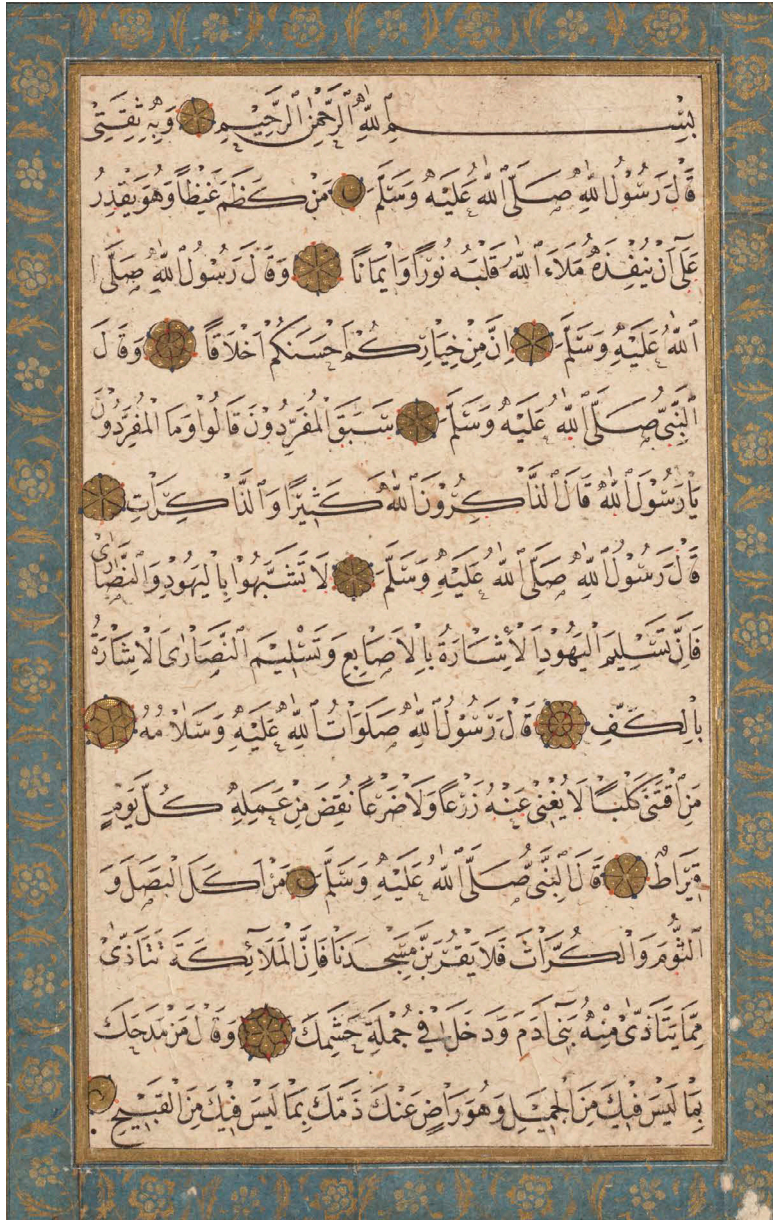 بِسْمِ اللّٰهِ الرَّحْمٰنِ الرَّحِيْمِ وَبِهِ ثِقَتِىْ
قَالَ رَسُوْلُ اللّٰهِ صَلَّى اللّٰهُ عَلَيْهِ وَسَلَّمَ مَنْ كَظَمَ غَيْظًا وَهُوَ يَقْدِرُ
عَلٰٓى اَنْ يُنْفِذَهُ مَلَاَء اللّٰهُ قَلْبَهُ نُوْرًا وَاِيْمَانًا وَقَالَ رَسُوْلُ اللّٰهِ صَلَّى ا
اللّٰهُ عَلَيْهِ وَسَلَّمَ اِنَّ مِنْ خِيَارِكُمْ اَحْسَنَكُمْ اَخْلَاقًا وَقَالَ
النَّبِىُّ صَلَّى اللّٰهُ عَلَيْهِ وَسَلَّمَ سَبَقَ الْمُفَرِّدُوْنَ قَالُوْا وَمَا الْمُفَرِّدُوْنَ
يَا رَسُوْلَ اللّٰهِ قَالَ الذَّاكِرُوْنَ اللّٰهَ كَثِيْرًا وَالذَّاكِرَاتِ
قَالَ رَسُوْلُ اللّٰهِ صَلَّى اللّٰهُ عَلَيْهِ وَسَلَّمَ لَا تَشَبَّهُوْا بِالْيَهُوْدِ وَالنَّصَارٰى
فَاِنَّ تَسْلِيْمَ الْيَهُوْدِ الْاِشَارَةُ بِالْاَصَابِعِ وَتَسْلِيْمَ النَّصَارٰى الْاِشَارَةُ
بِالْكَفِّ قَالَ رَسُوْلُ اللّٰهِ صَلَوَاتُ اللّٰهِ عَلَيْهِ وَسَلَامُهُ
مَنِ اقْتَنٰى كَلْبًا لَا يُغْنِىْ عَنْهُ زَرْعًا وَلَا ضَرْعًا نُقِصَ مِنْ عَمَلِهِ كُلَّ يَوْمٍ
قِيْرَاطٌ قَالَ النَّبِىُّ صَلَّى اللّٰهُ عَلَيْهِ وَسَلَّمَ مَنْ اَكَلَ الْبَصَلَ وَ
الثُّوْمَ وَالْكُرَّاثَ فَلَا يَقْرُبَنَّ مَسْجِدَنَا فَاِنَّ الْمَلَآئِكَةَ تَتَاَذّٰى
مِمَّا يَتَاَذّٰى مِنْهُ بَنِىْٓ اٰدَمَ وَدَخَلَ فِىْ جُمْلَةِ حَشَمِكَ وَقَالَ مَنْ مَدَحَكَ
بِمَا لَيْسَ فِيْكَ مِنَ الْجَمِيْلِ وَهُوَ رَاضٍ عَنْكَ ذَمَّكَ بِمَا لَيْسَ فِيْكَ مِنَ الْقَبِيْحِ